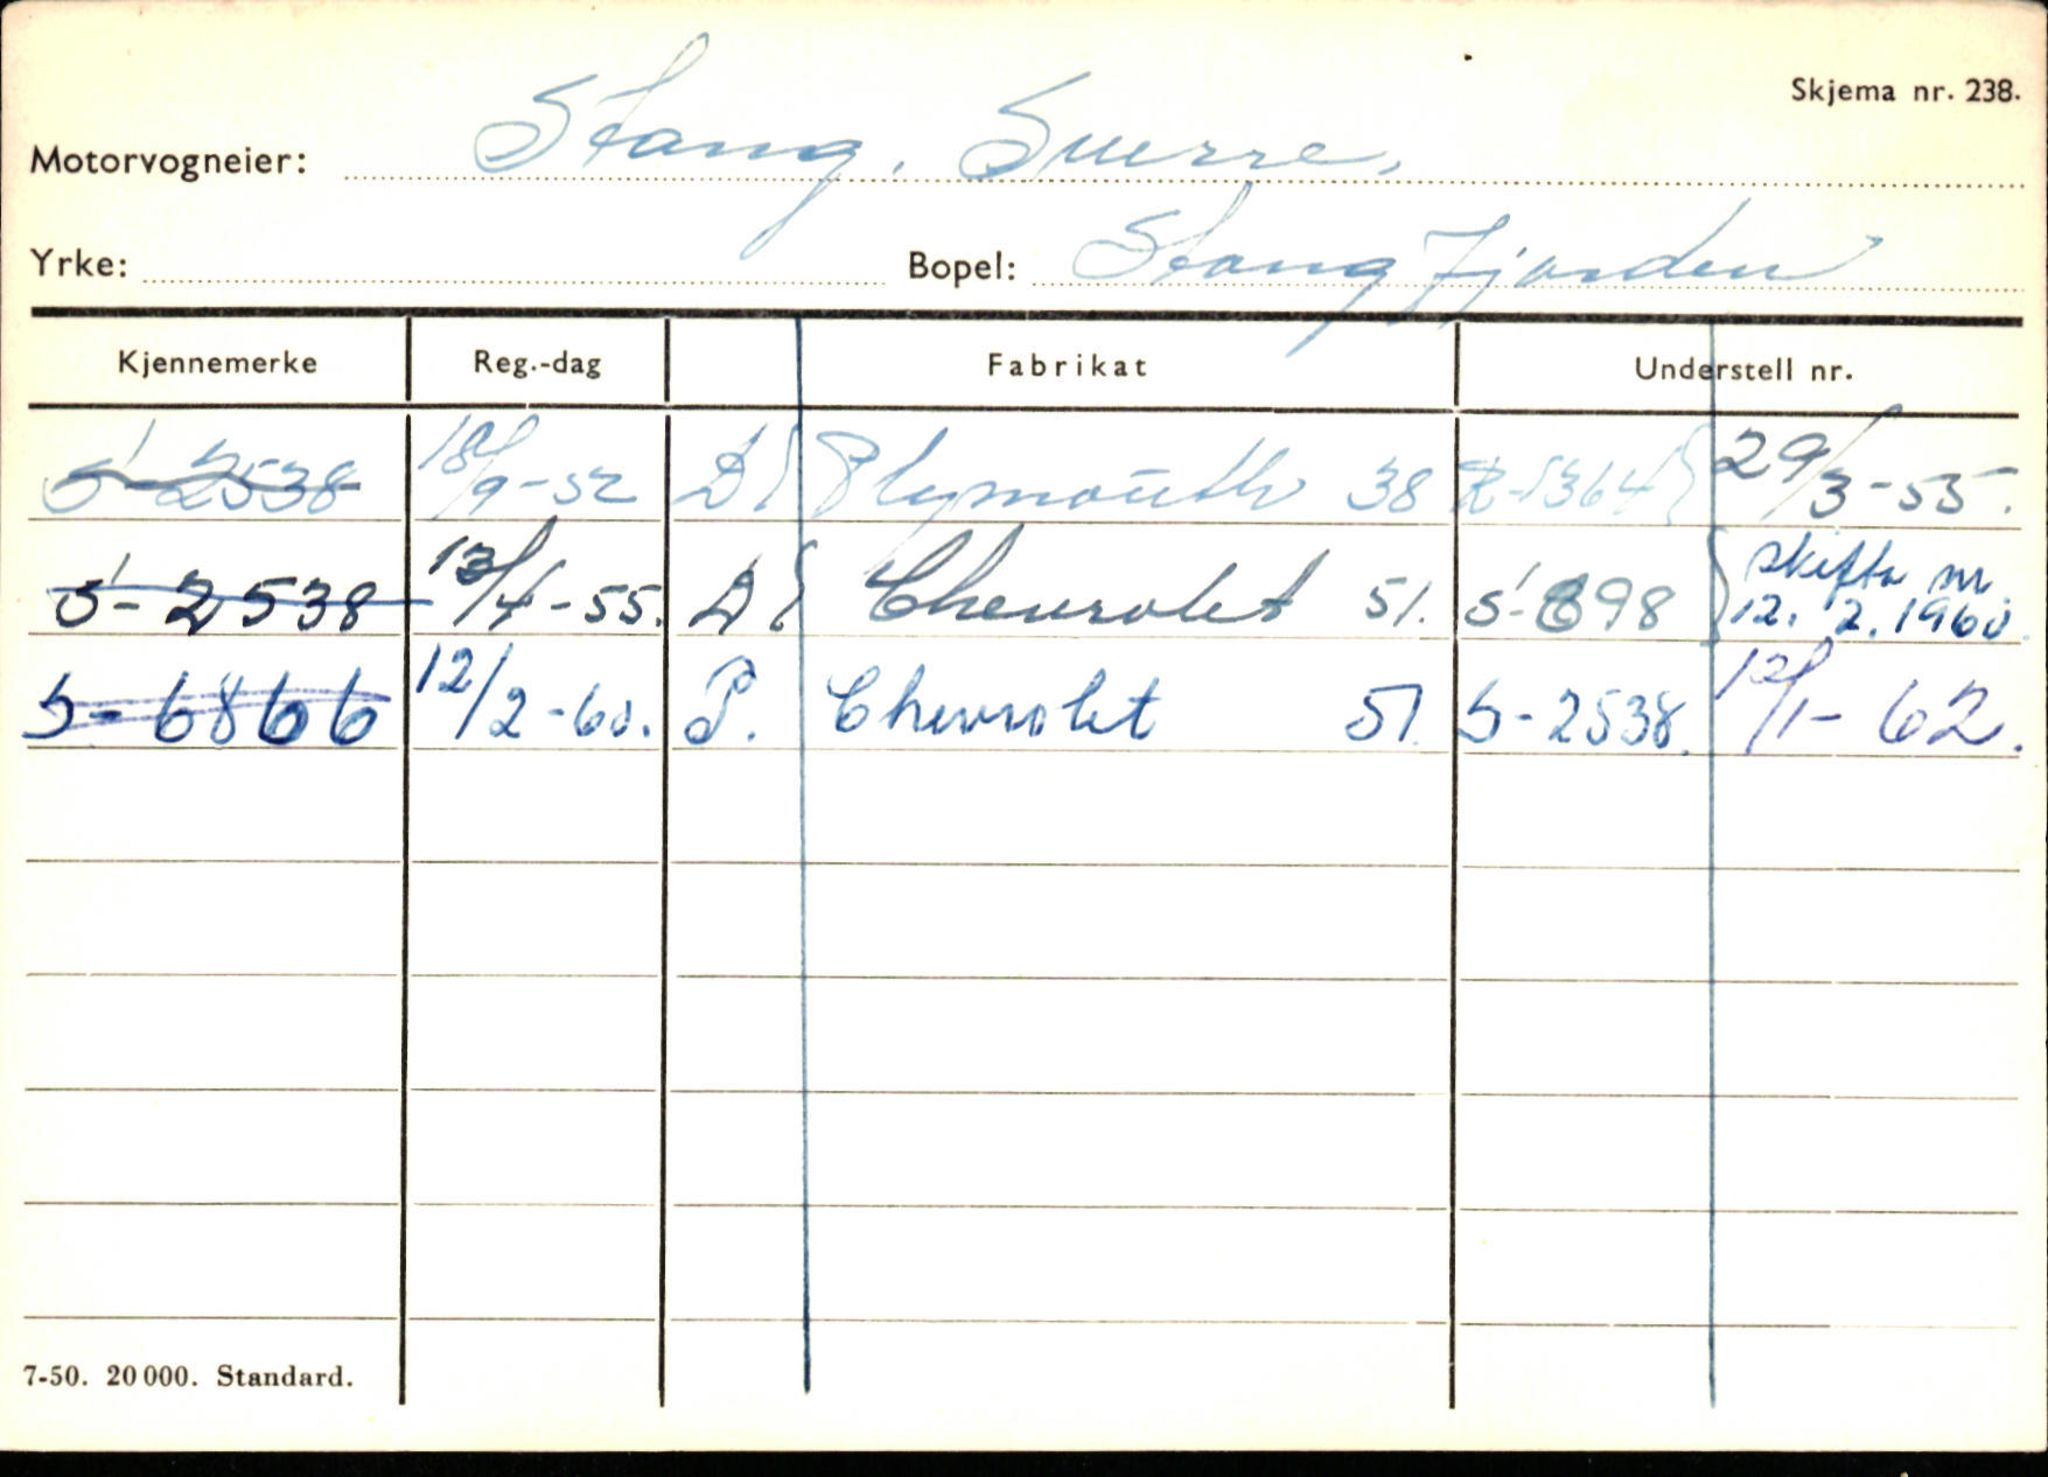 Skjema nr. 238.
Motorvogneier: Stang, Sverre,
Yrke: Bopel: Stangfjorden
Kjennemerke Reg.-dag Fabrikat Understell nr.
S-2538 18/9-52 D Plymouth 38 R-1364 29/3-55.
S-2538 13/4-55. D Chevrolet 51. S-698 skifta nr. 12. 2. 1960.
S-6866 12/2-60. P. Chevrolet 51. S-2538. 12/1-62.
7-50. 20 000. Standard.